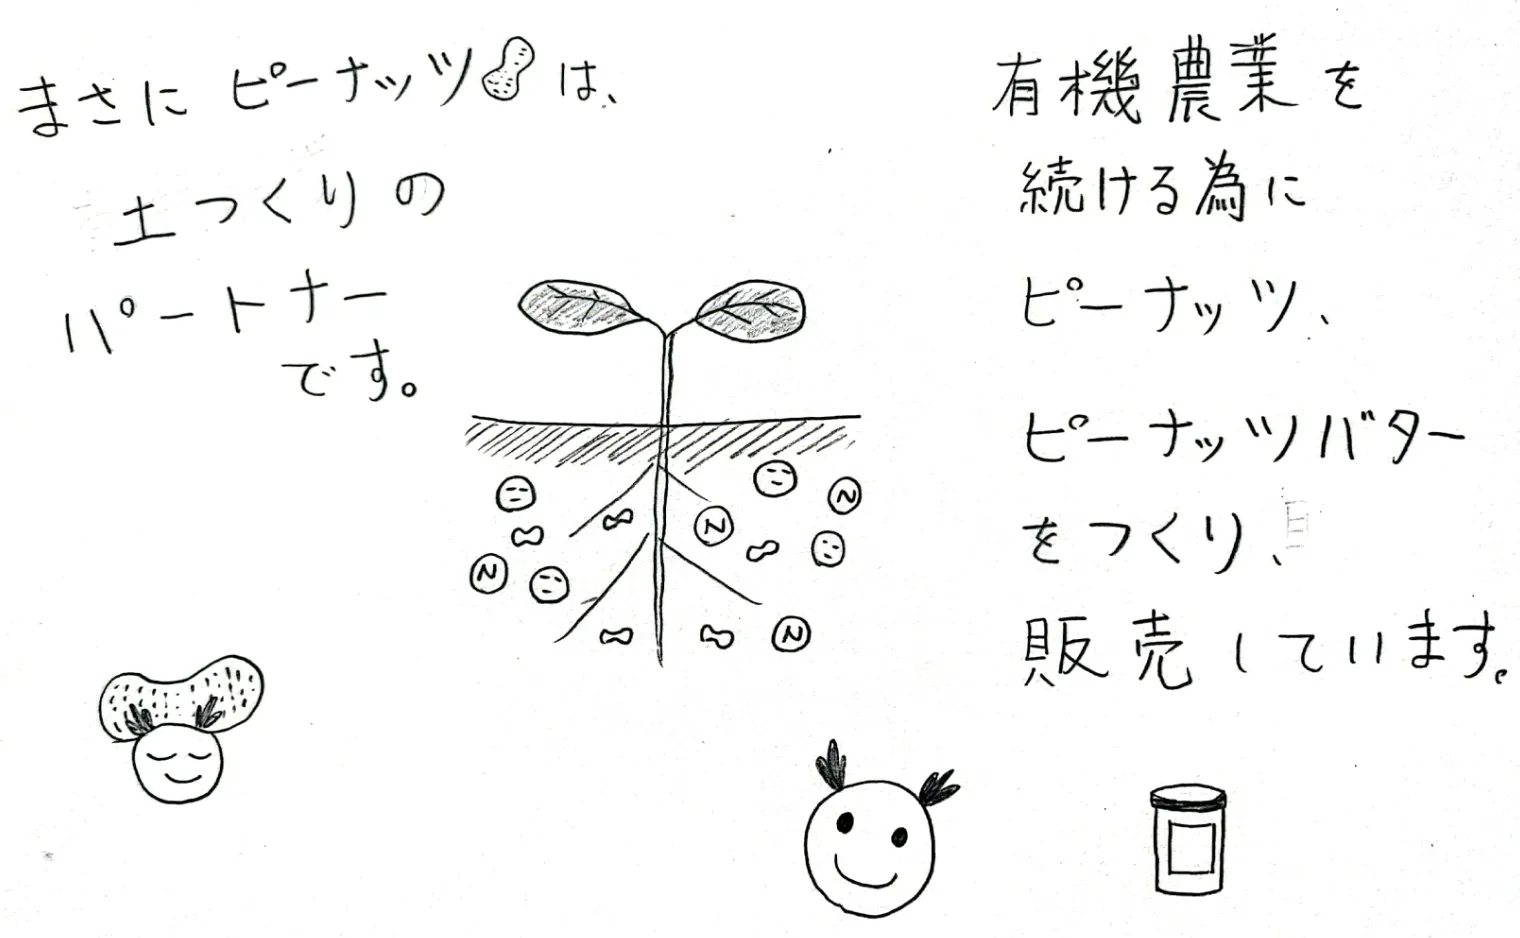 まさにピーナッツは、
土つくりの
パートナー
です。
有機農業を
続ける為に
ピーナッツ、
ピーナッツバター
をつくり、
販売しています。
N
N
N
N